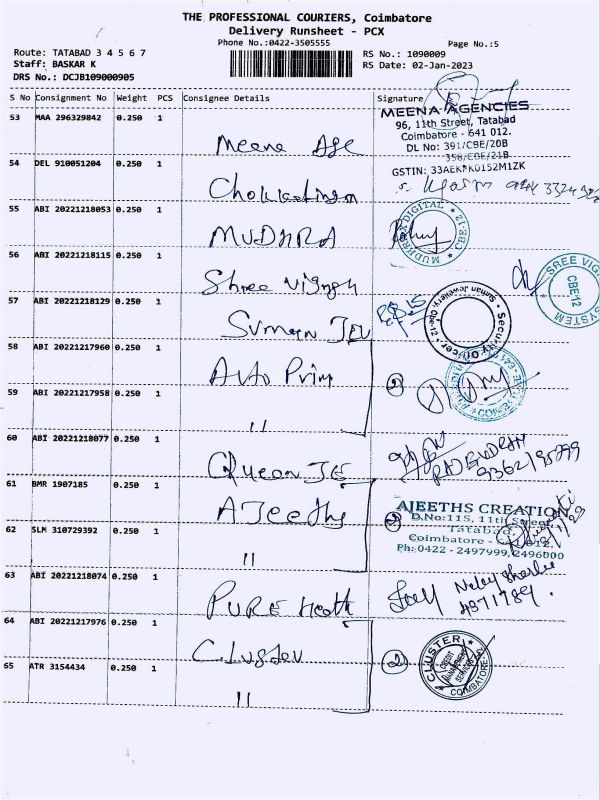 THE PROFESSIONAL COURIERS, Coimbatore
Delivery Runsheet - PCX
Phone No.:0422-3505555
Page No.:5
Route: TATABAD 3 4 5 6 7
Staff: BASKAR K
DRS No.: DCJB109000905
RS No.: 1090009
RS Date: 02-Jan-2023
S No Consignment No Weight PCS Consignee Details Signature
53 MAA 296329842 0.250 1 Meena Age
MEENA AGENCIES
96, 11th Street, Tatabad
Coimbatore - 641 012.
DL No: 391/CBE/20B
GSTIN: 33AEKPK0152M1ZK
54 DEL 910051204 0.250 1
55 ABI 20221218053 0.250 1 MUDHRA
DIGITAL CBE-12
56 ABI 20221218115 0.250 1 Shree
SREE
CBE-12
SYSTEM
57 ABI 20221218129 0.250 1 Suman JEW
Suman Jewellery, Cbe-12. Security Officer
58 ABI 20221217960 0.250 1 Auto Prim
2
59 ABI 20221217958 0.250 1 "
60 ABI 20221218077 0.250 1 Queen JE
RAJENDRAN
61 BMR 1907185 0.250 1 AJeeths
2
AJEETHS CREATION
D.No:115, 11th Street,
Tatabad,
Coimbatore
Ph:0422 - 2497999, 2496000
62 SLM 310729392 0.250 1 "
63 ABI 20221218074 0.250 1 PURE Health
64 ABI 20221217976 0.250 1 Cluster
2
CLUSTER
CREDIT MANAGEMENT SERVICES
COIMBATORE
65 ATR 3154434 0.250 1 "